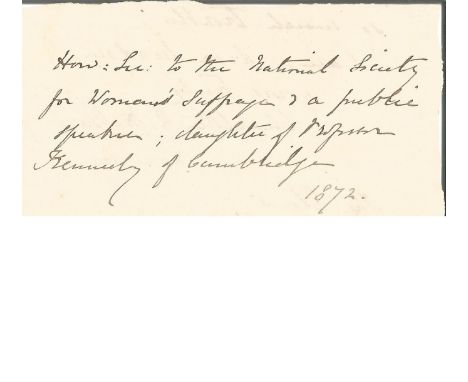 Hon: Sec: to the National Society
for Woman's Suffrage & a public
speaker; daughter of Professor
Kennedy of Cambridge
1872.